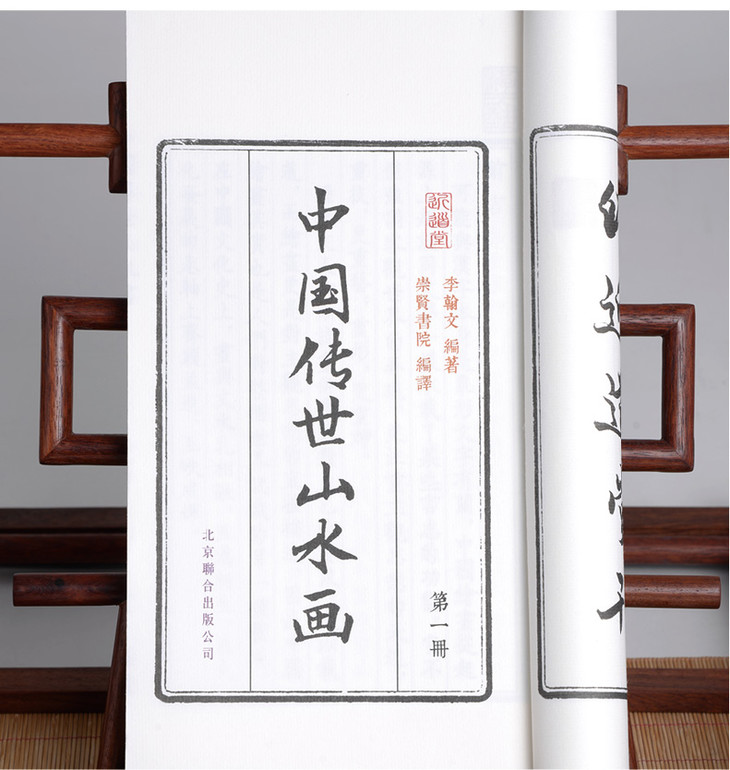 近道堂
李翰文 編著
崇賢書院 編譯
第一冊
中国传世山水画
北京聯合出版公司